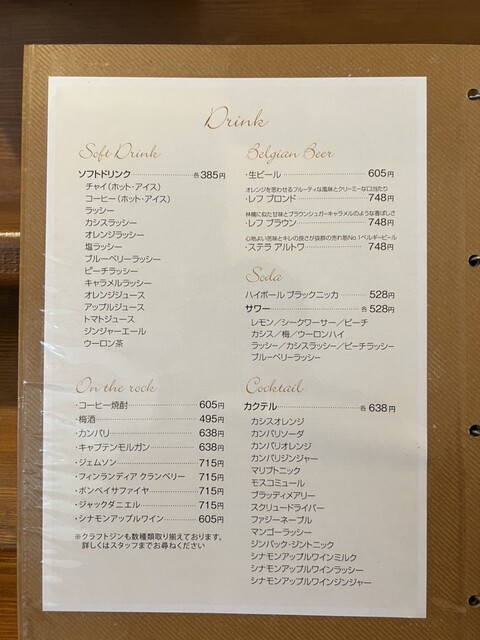 Drink
Soft Drink
ソフトドリンク 各385円
チャイ(ホット・アイス)
コーヒー(ホット・アイス)
ラッシー
カシスラッシー
オレンジラッシー
塩ラッシー
ブルーベリーラッシー
ピーチラッシー
キャラメルラッシー
オレンジジュース
アップルジュース
トマトジュース
ジンジャーエール
ウーロン茶
Belgian Beer
・生ビール 605円
オレンジを思わせるフルーティな風味とクリーミーな口当たり
・レフ ブロンド 748円
林檎に似た甘味とブラウンシュガーキャラメルのような香ばしさ
・レフ ブラウン 748円
心地よい苦味とキレの良さが抜群の売れ筋No.1ベルギービール
・ステラ アルトワ 748円
Soda
ハイボール ブラックニッカ 528円
サワー 各528円
レモン/シークワーサー/ピーチ
カシス/梅/ウーロンハイ
ラッシー/カシスラッシー/ピーチラッシー
ブルーベリーラッシー
On the rock
・コーヒー焼酎 605円
・梅酒 495円
・カンパリ 638円
・キャプテンモルガン 638円
・ジェムソン 715円
・フィンランディア クランベリー 715円
・ボンベイサファイヤ 715円
・ジャックダニエル 715円
・シナモンアップルワイン 605円
※クラフトジンも数種類取り揃えております。
詳しくはスタッフまでお尋ねください
Cocktail
カクテル 各638円
カシスオレンジ
カンパリソーダ
カンパリオレンジ
カンパリジンジャー
マリブトニック
モスコミュール
ブラッディメアリー
スクリュードライバー
ファジーネーブル
マンゴーラッシー
ジンバック・ジントニック
シナモンアップルワインミルク
シナモンアップルワインラッシー
シナモンアップルワインジンジャー